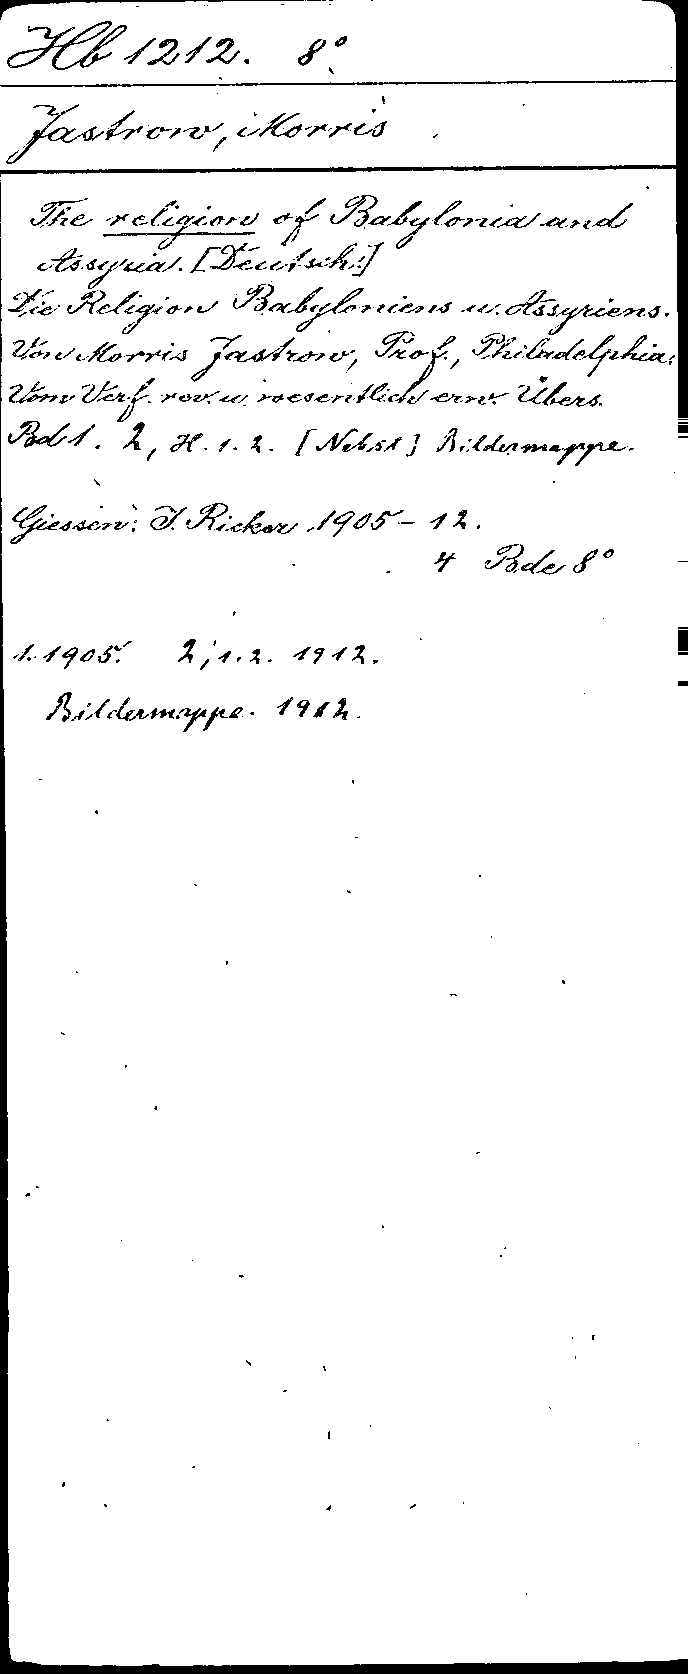 Hb 1212. 8°
Jastrow, Morris
The religion of Babylonia and
Assyria. [Deutsch:]
Die Religion Babyloniens u. Assyriens.
Von Morris Jastrow, Prof., Philadelphia.
Vom Verf. rev. u. wesentlich erw. Übers.
Bd 1. 2, H. 1. 2. [Nebst] Bildermappe.
Giessen: J. Ricker 1905-12.
4 Bde 8°
1. 1905. 2,1.2. 1912.
Bildermappe. 1912.